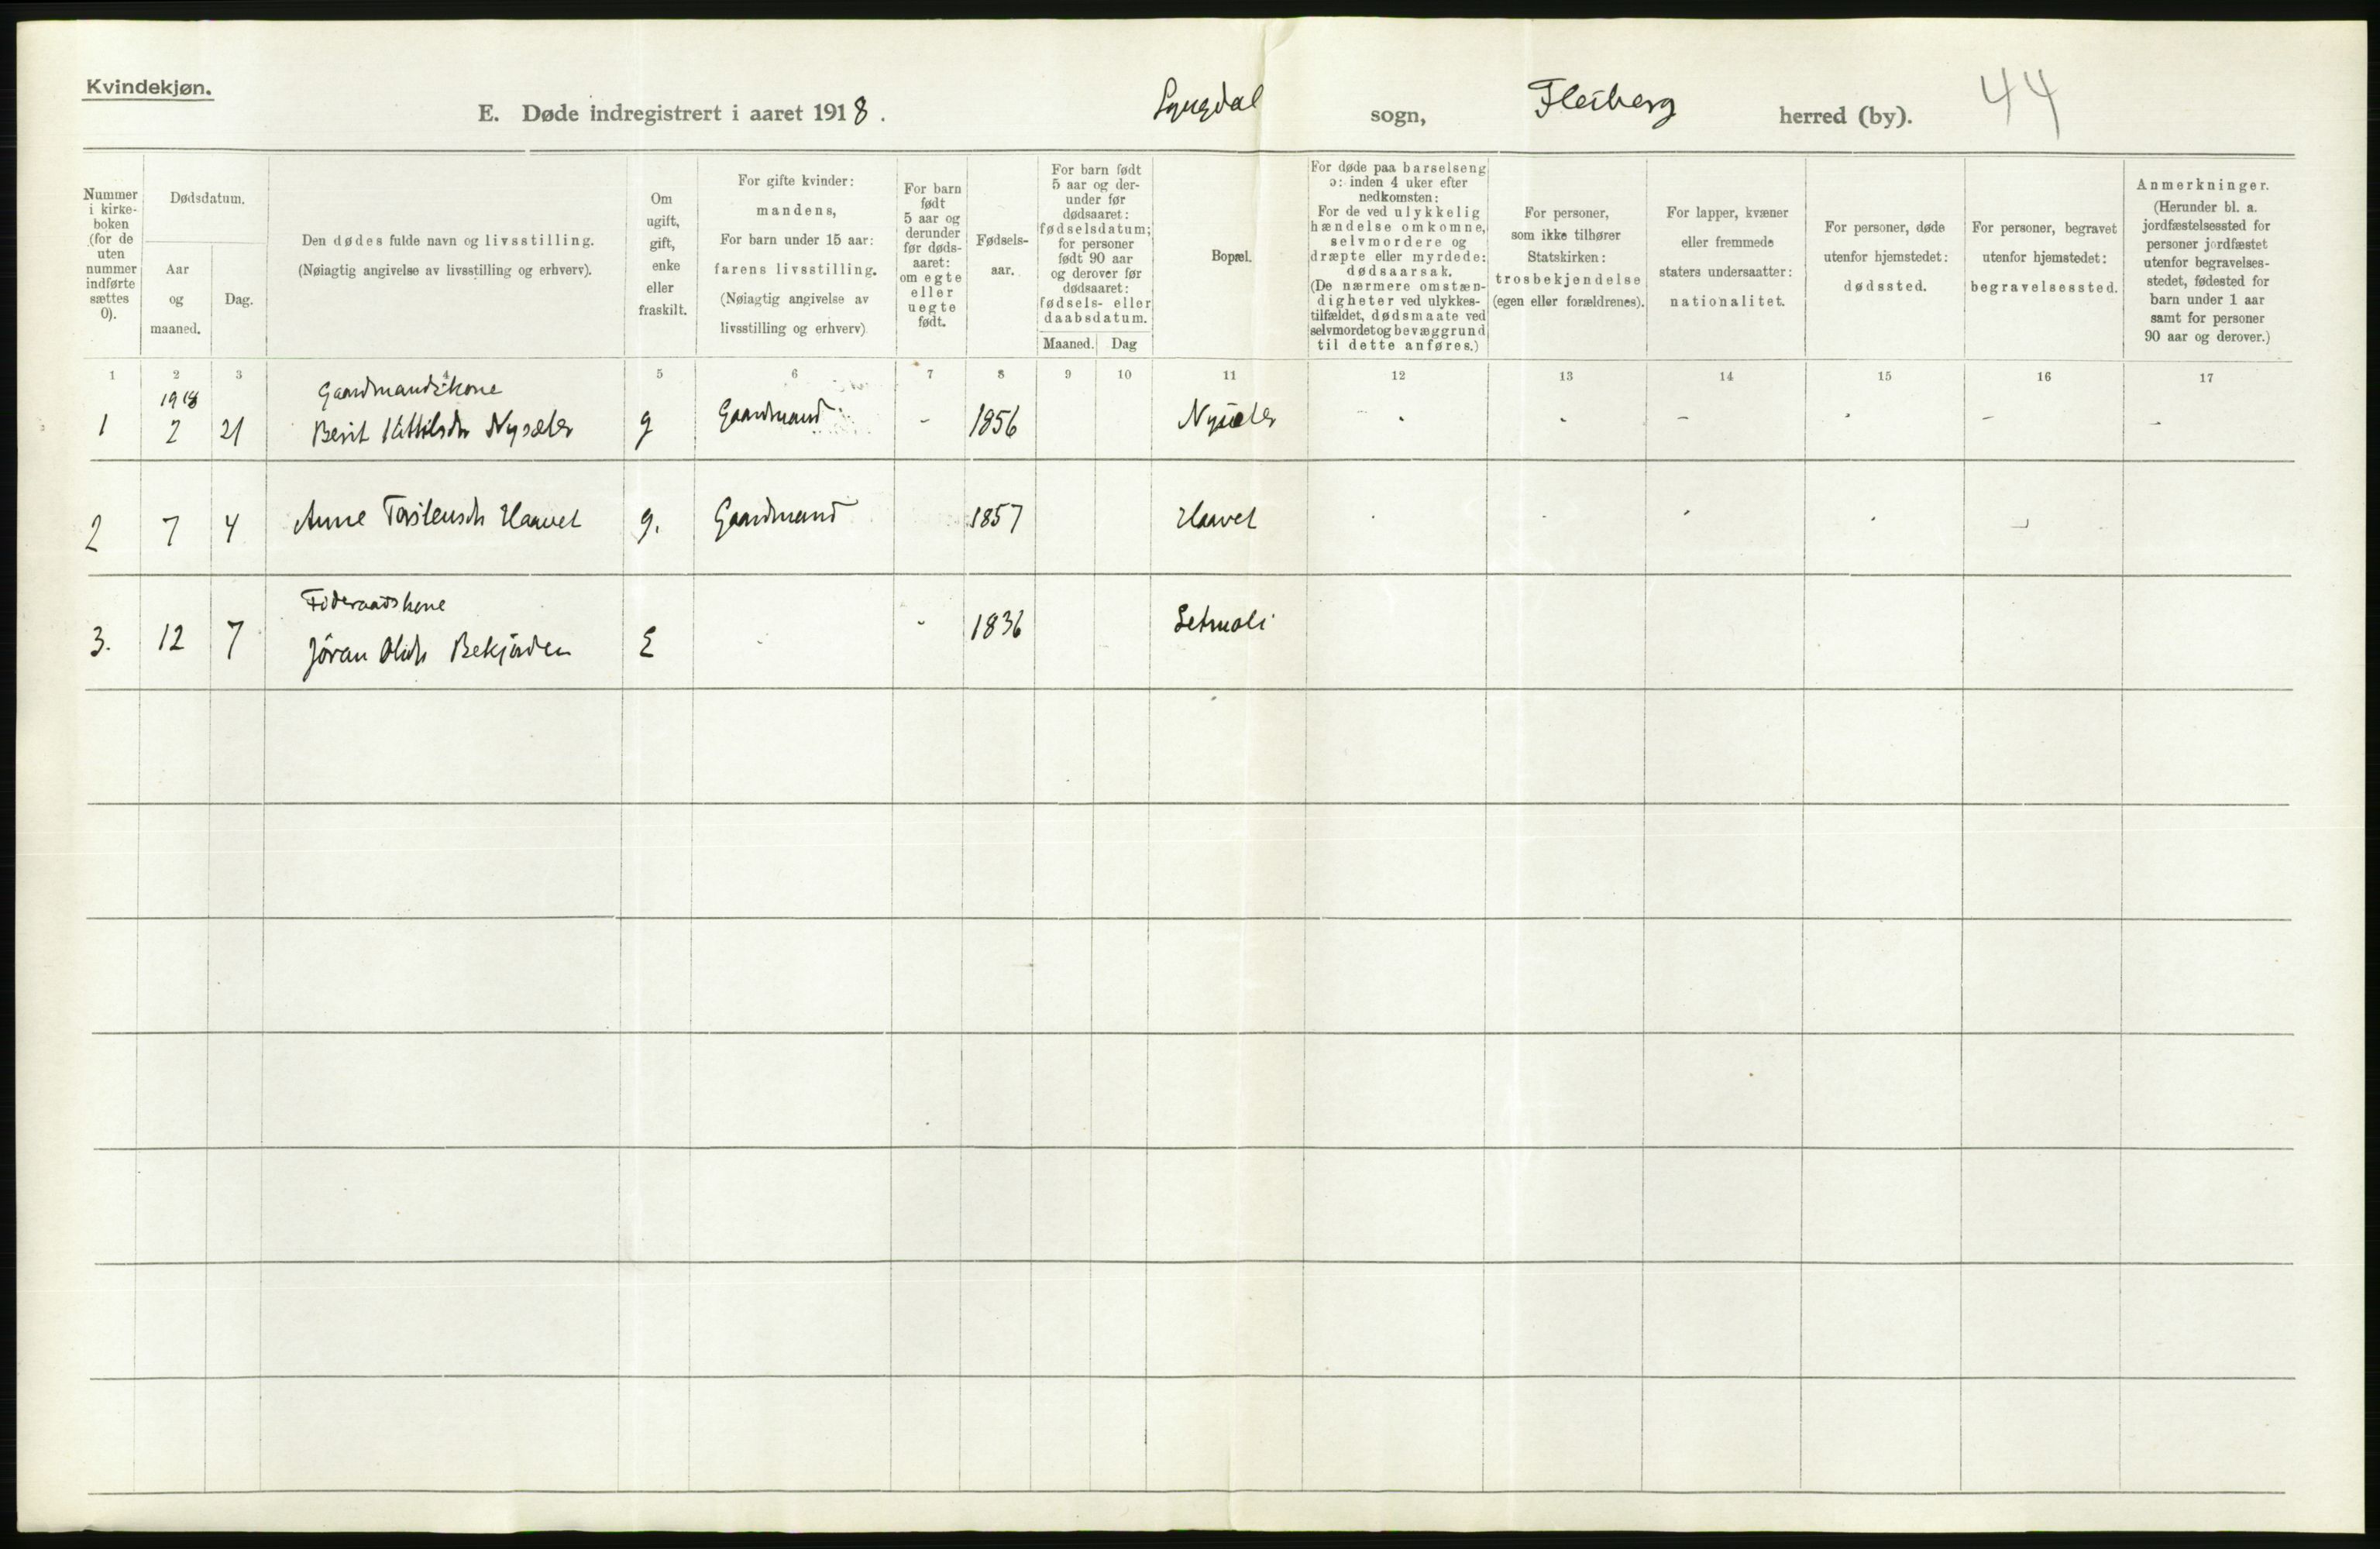 Kvindekjøn.
E. Døde indregistrert i aaret 1918. Lyngdal sogn, Flesberg herred (by). 44
Nummer i kirke-boken (for de uten nummer indførte sættes 0).
Dødsdatum.
Aar og maaned.
Dag.
Den dødes fulde navn og livsstilling.
(Nøiagtig angivelse av livsstilling og erhverv).
Om ugift, gift, enke eller fraskilt.
For gifte kvinder:
mandens,
For barn under 15 aar:
farens livsstilling.
(Nøiagtig angivelse av
livsstilling og erhverv)
For barn født 5 aar og derunder før døds-aaret: om egte eller uegte født.
Fødsels-aar.
For barn født 5 aar og der-under før dødsaaret: fødselsdatum; for personer født 90 aar og derover før dødsaaret: fødsels- eller daabsdatum.
Maaned. Dag
Bopæl.
For døde paa barselseng
ɔ: inden 4 uker efter
nedkomsten:
For de ved ulykkelig
hændelse omkomne,
selvmordere og
dræpte eller myrdede:
dødsaarsak.
(De nærmere omstæn-
digheter ved ulykkes-
tilfældet, dødsmaate ved
selvmordet og bevæggrund
til dette anføres.)
For personer,
som ikke tilhører
Statskirken:
trosbekjendelse
(egen eller forældrenes).
For lapper, kvæner
eller fremmede
staters undersaatter:
nationalitet.
For personer, døde
utenfor hjemstedet:
dødssted.
For personer, begravet
utenfor hjemstedet:
begravelsessted.
Anmerkninger.
(Herunder bl. a.
jordfæstelsessted for
personer jordfæstet
utenfor begravelses-
stedet, fødested for
barn under 1 aar
samt for personer
90 aar og derover.)
1 2 3 4 5 6 7 8 9 10 11 12 13 14 15 16 17
1918 Gaardmandskone
1 2 21 Berit Kittilsdr Nysæter g Gaardmand - 1856 Nysæter - - - - - -
2 7 4 Anne Torstensdr Haavet g. Gaardmand 1857 Haavet
Föderaadskone
3. 12 7 Jöran Olsdr Bekjorden E - - 1836 Setmoli